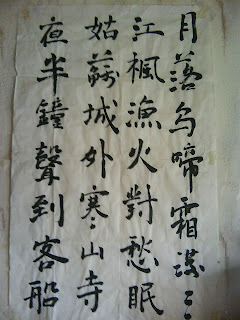 月落烏啼霜滿
江楓漁火對愁眠
姑蘇城外寒山寺
夜半鐘聲到客船